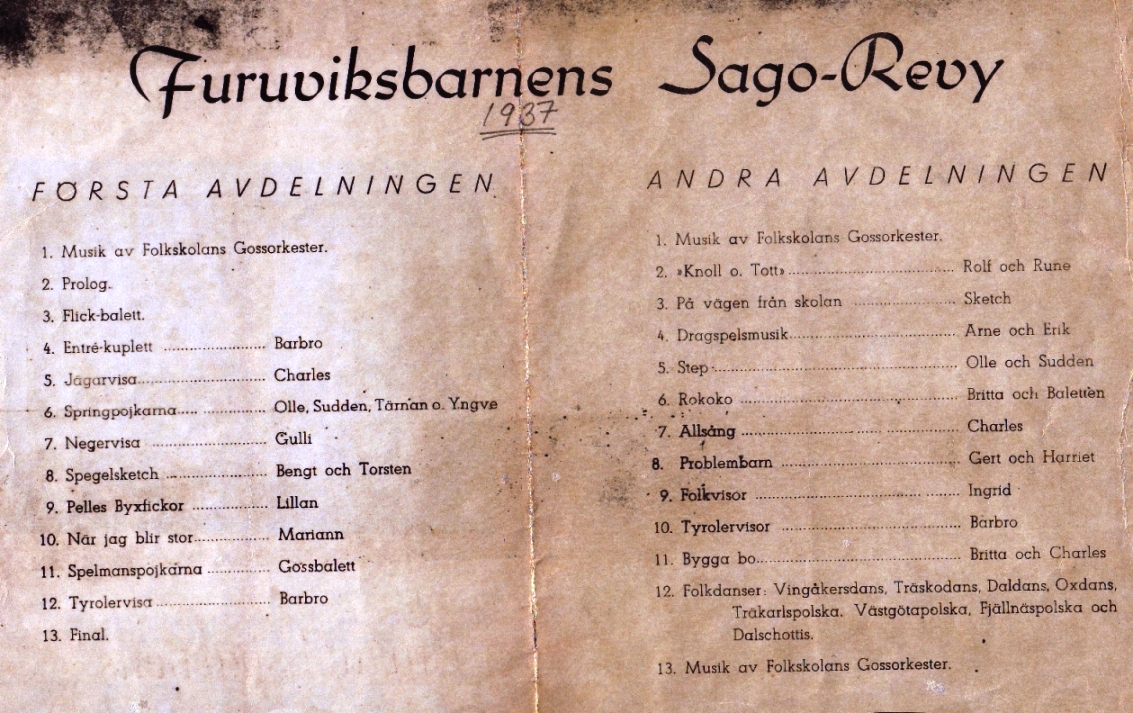 Furuviksbarnens Sago-Revy
1937
FÖRSTA AVDELNINGEN
1. Musik av Folkskolans Gossorkester.
2. Prolog.
3. Flick-balett.
4. Entré-kuplett ........................ Barbro
5. Jägarvisa............................. Charles
6. Springpojkarna.... ................ Olle, Sudden, Tärnan o. Yngve
7. Negervisa ........................... Gulli
8. Spegelsketch ....................... Bengt och Torsten
9. Pelles Byxfickor ................. Lillan
10. När jag blir stor................. Mariann
11. Spelmanspojkarna .............. Gossbalett
12. Tyrolervisa......................... Barbro
13. Final.
ANDRA AVDELNINGEN
1. Musik av Folkskolans Gossorkester.
2. »Knoll o. Tott» ...................................... Rolf och Rune
3. På vägen från skolan ........................ Sketch
4. Dragspelsmusik...................................... Arne och Erik
5. Step ...................................................... Olle och Sudden
6. Rokoko ................................................. Britta och Baletten
7. Allsång ................................................. Charles
8. Problembarn ........................................ Gert och Harriet
9. Folkvisor .............................................. Ingrid
10. Tyrolervisor ......................................... Barbro
11. Bygga bo.............................................. Britta och Charles
12. Folkdanser: Vingåkersdans, Träskodans, Daldans, Oxdans,
Träkarlspolska. Västgötapolska, Fjällnäspolska och
Dalschottis.
13. Musik av Folkskolans Gossorkester.